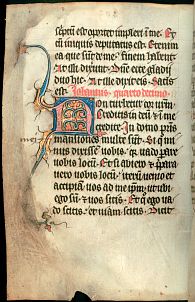 scptū est oportet impleri i me. Et
cū iniquis deputatus est. Etenim
ea que sūt de me finem habent.
At illi dixerūt. Dñe ecce gladii
duo hic. At ille dixit eis. Satis
est. Johannis quarto decimo.
Non turbetur cor ur̄m.
Creditis in deū et in me
credite. In domo pr̄is
mansiones multe sūt. Si quo
minus dixissē vobis. quia vado parare
vobis locū. Et si abiero et p̄para
vero vobis locū. iterū venio et
accipiā vos ad me ip̄m. ut ubi
ego sū et vos sitis. Et quo ego va
do scitis. et viam scitis. Dicit